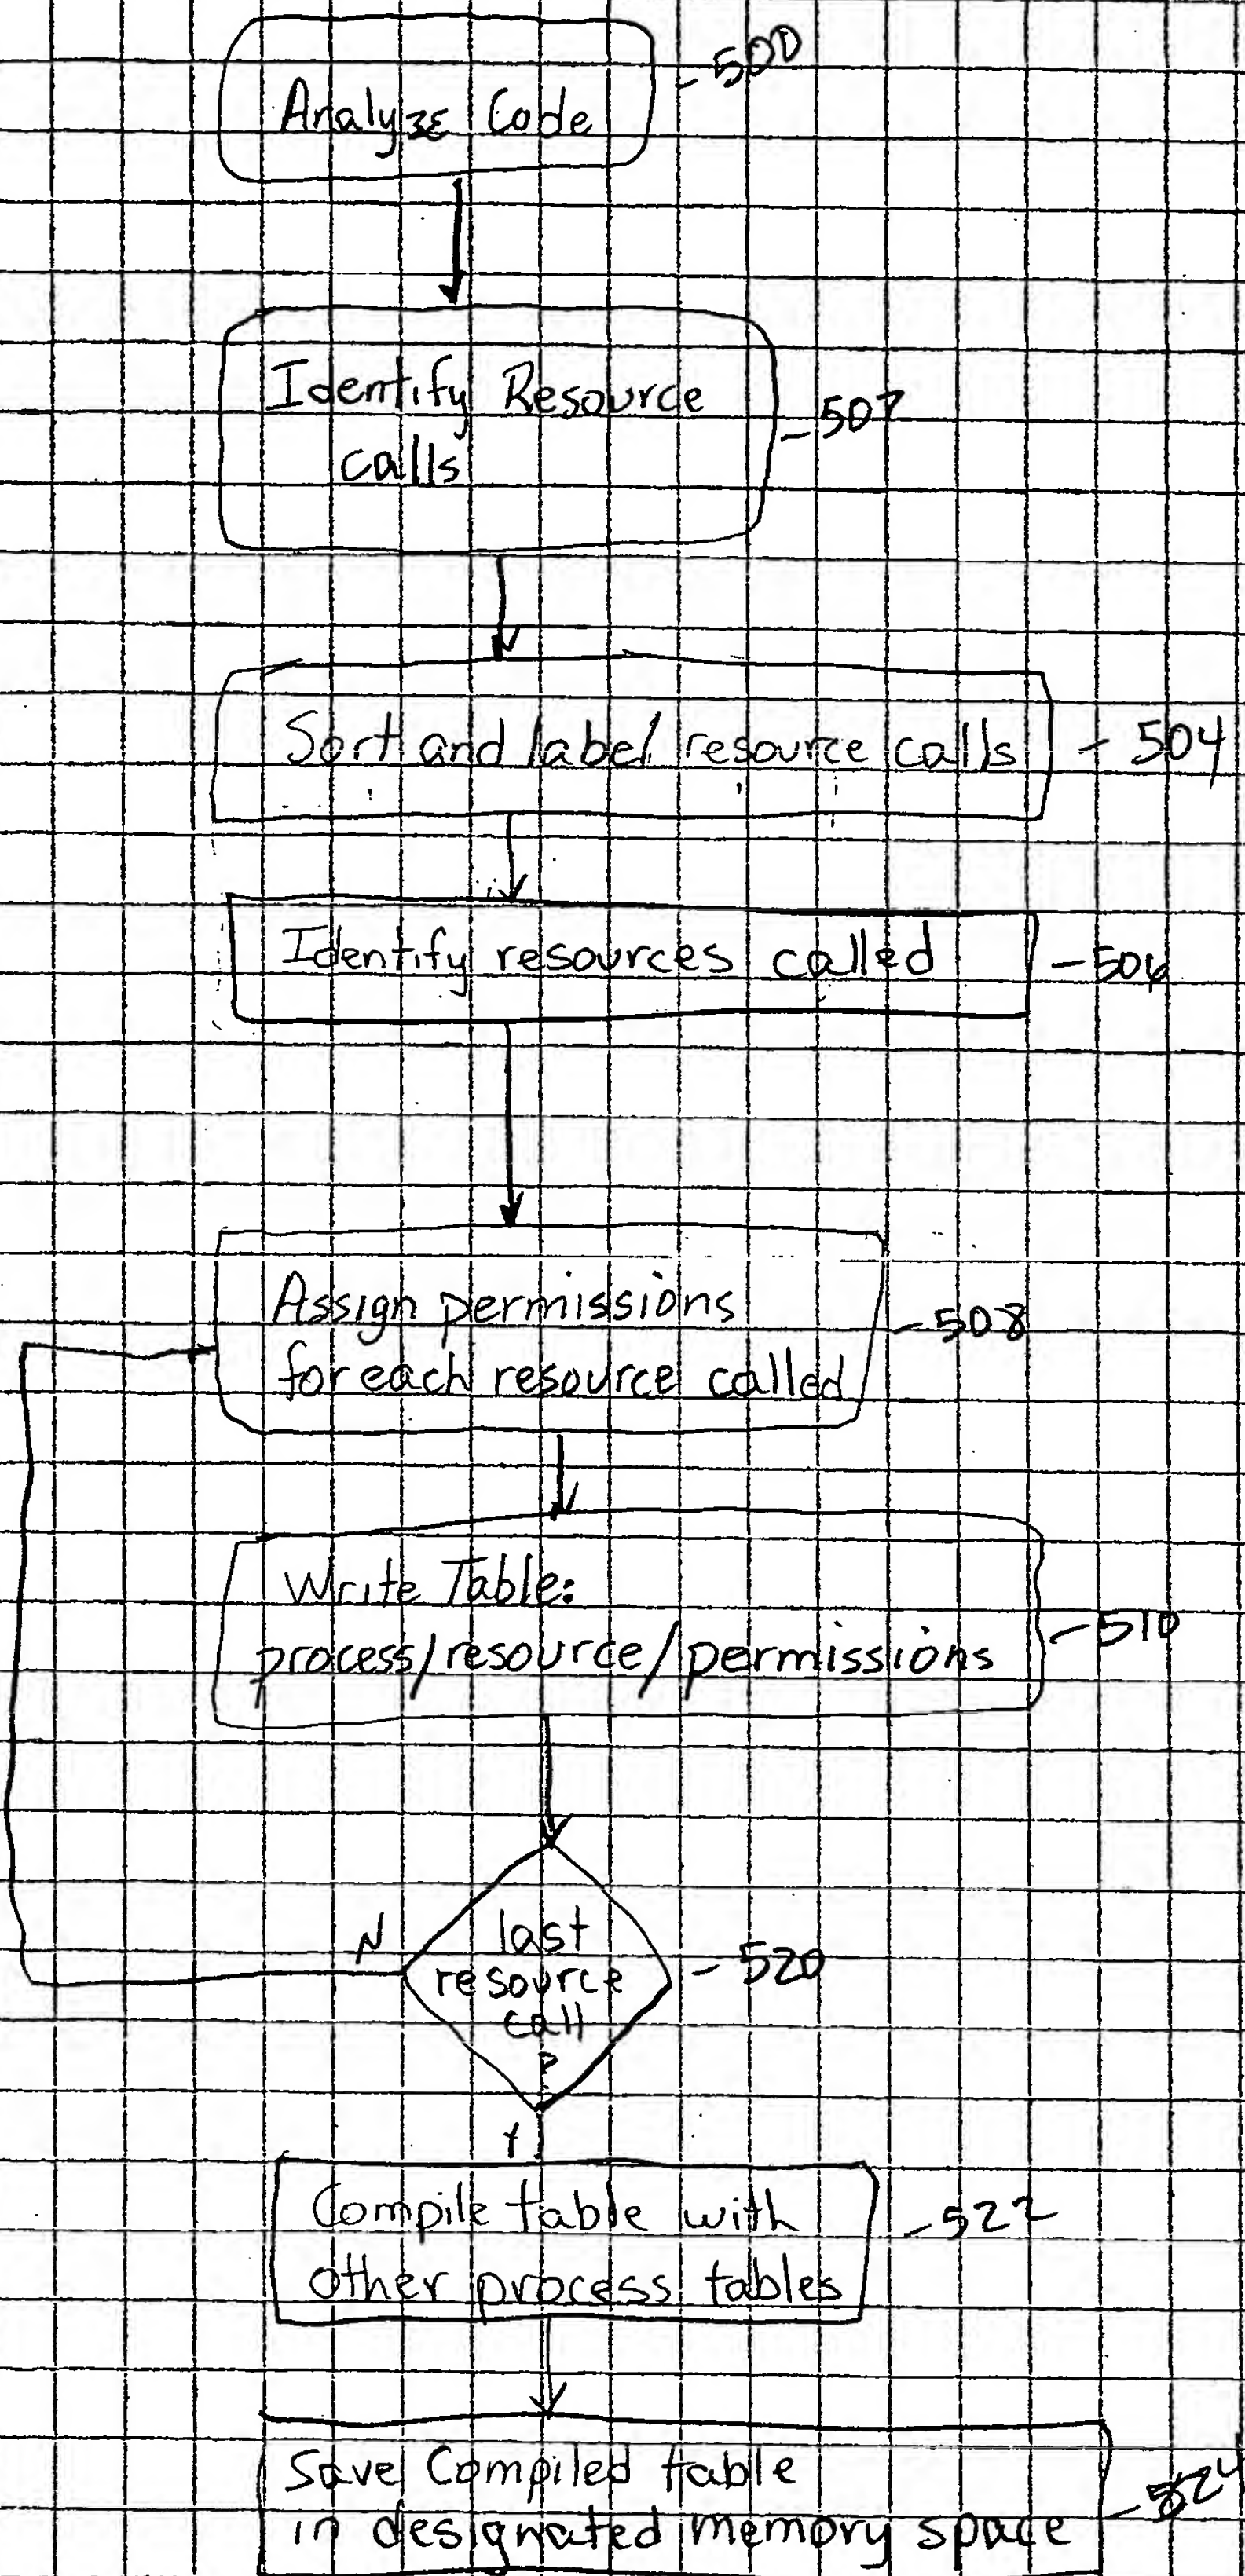 Analyze Code
-500
Identify Resource
calls
-502
Sort and label resource calls
-504
Identify resources called
-506
Assign permissions
for each resource called
-508
Write Table:
process/resource/permissions
-510
last
resource
call
?
-520
N
Y
Compile table with
other process tables
-522
Save Compiled table
in designated memory space
-524